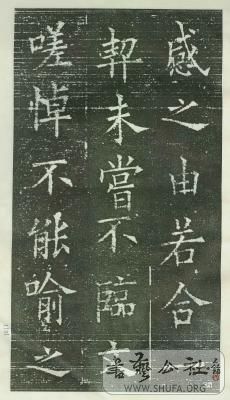 感之由若合
契未嘗不臨文
嗟悼不能喻之
書藝公社
WWW.SHUFA.ORG